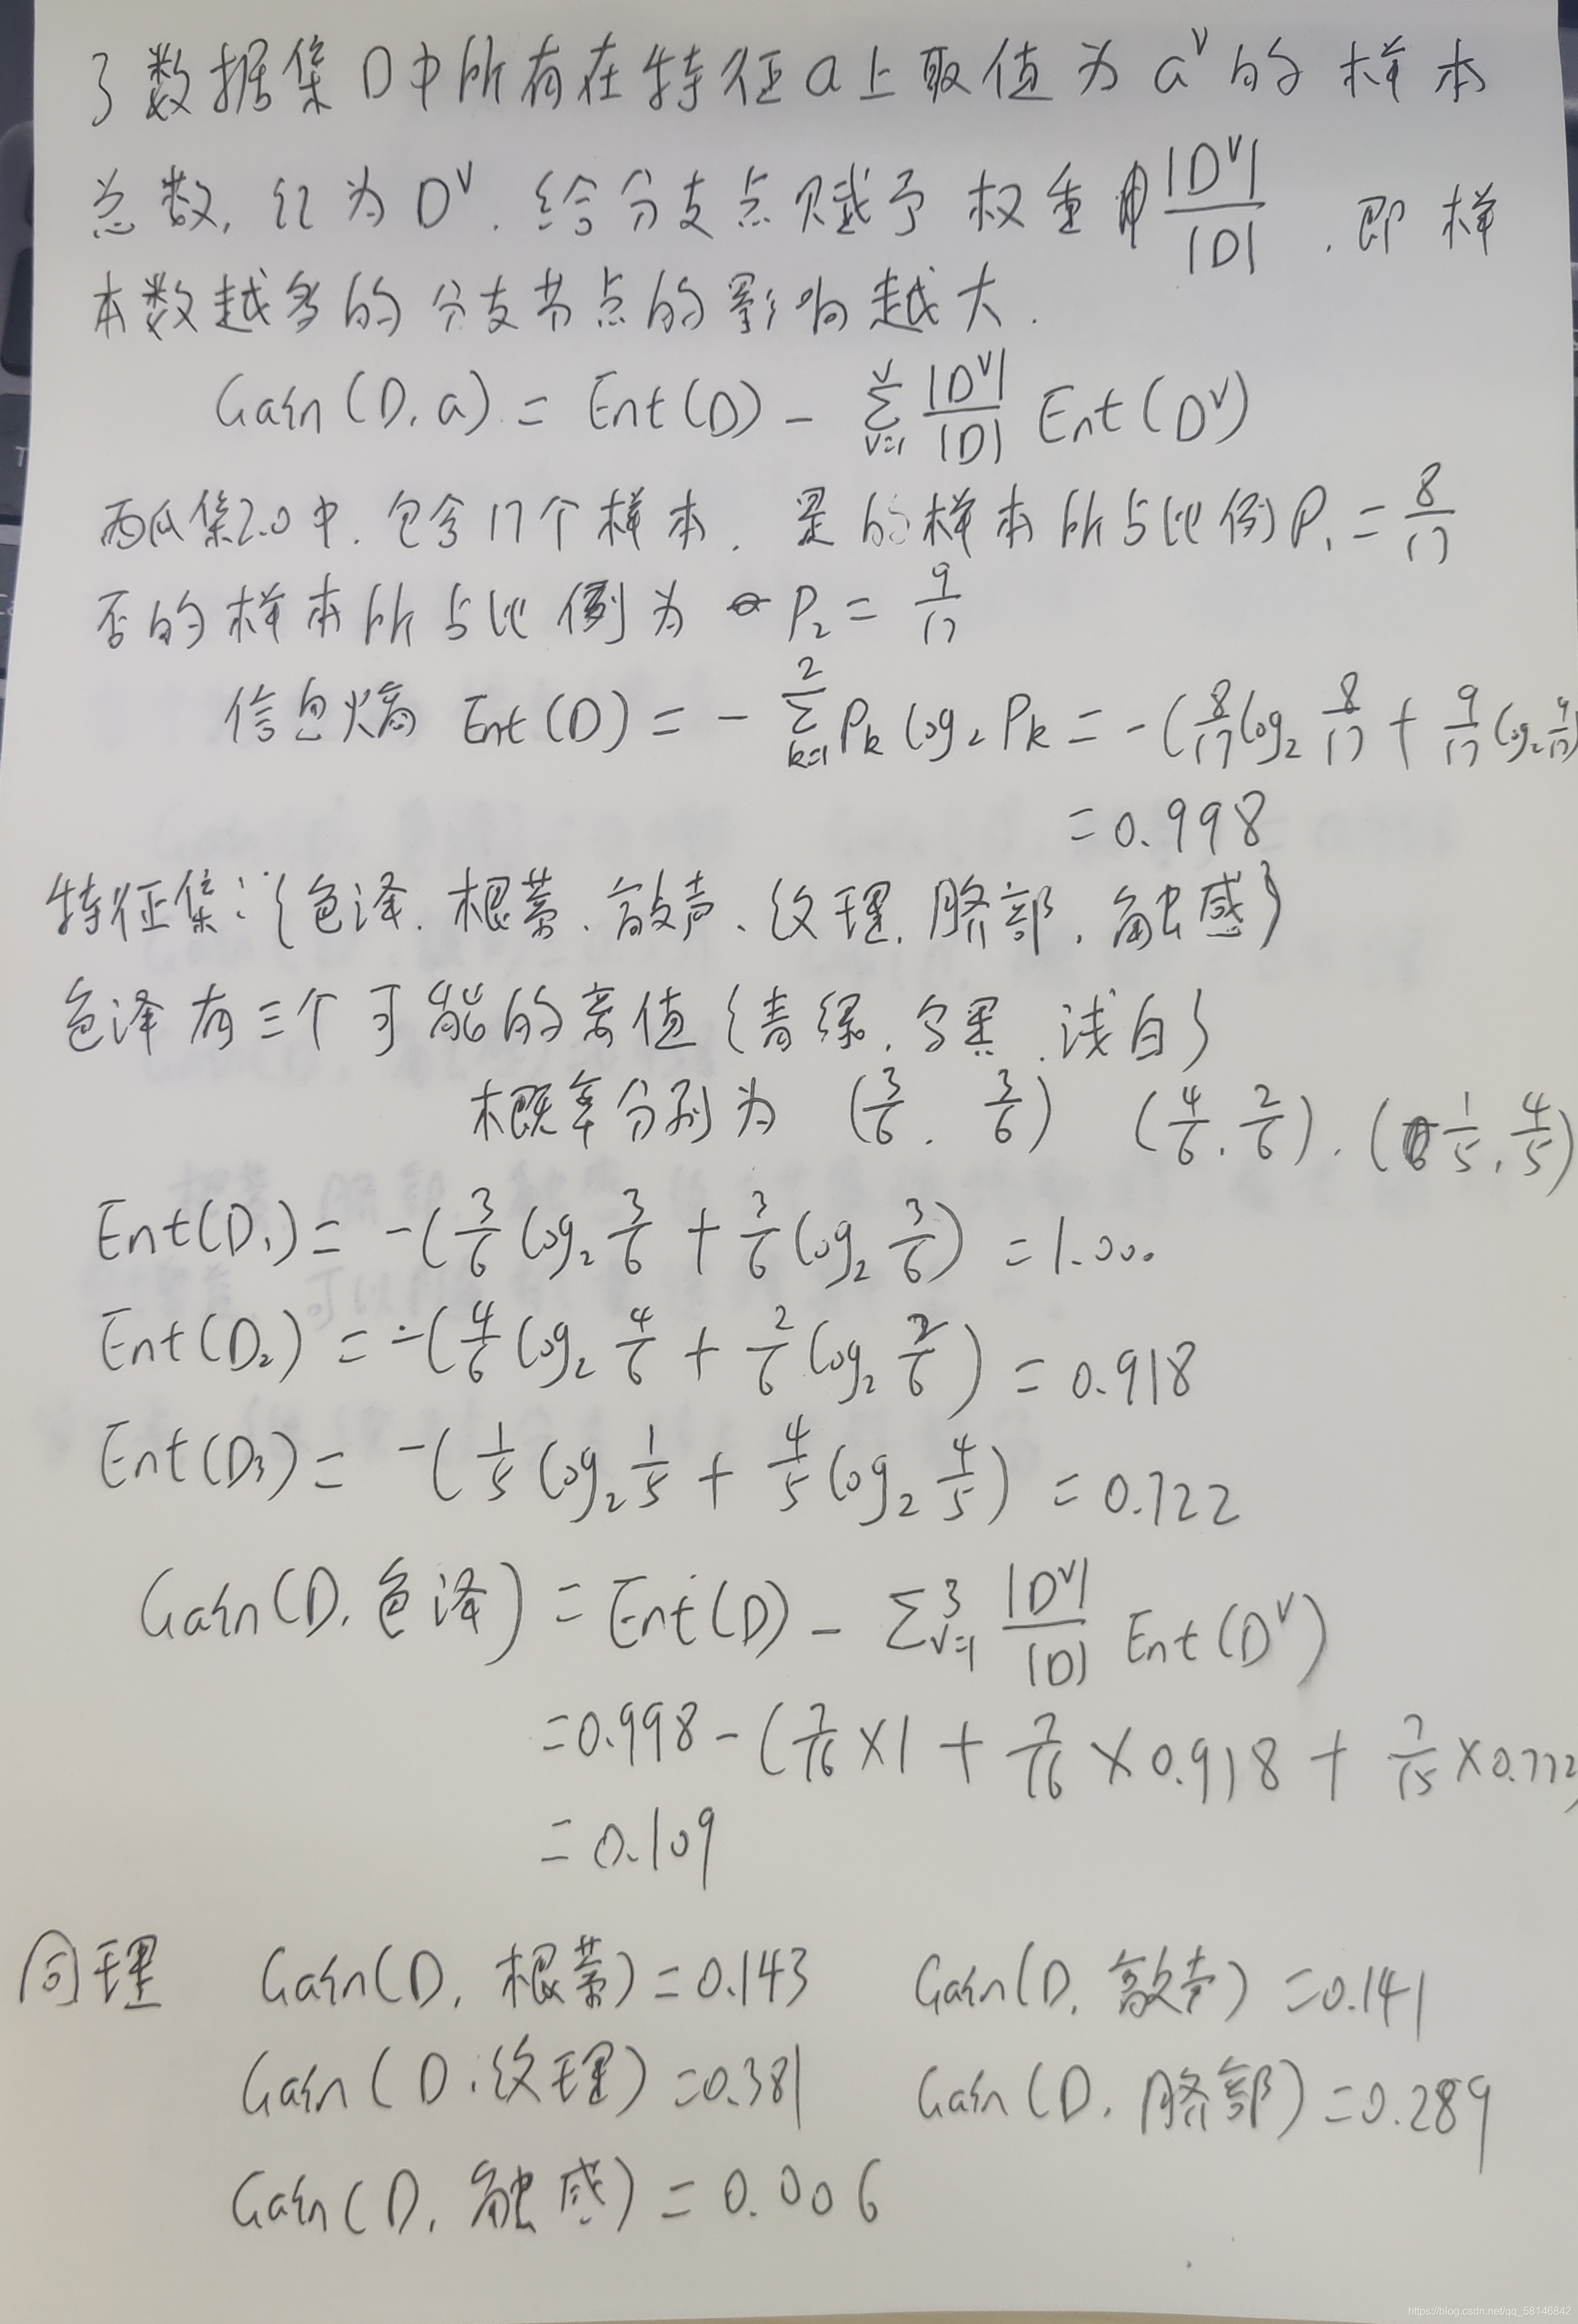 了数据集D中所有在特征a上取值为a^v的样本
总数, 记为D^v. 给分支点赋予权重 |D^v|/|D| . 即样
本数越多的分支节点的影响越大.
Gain(D, a) = Ent(D) - Σ_{v=1}^{V} |D^v|/|D| Ent(D^v)
西瓜集2.0中. 包含17个样本. 是的样本所占比例P₁ = 8/17
否的样本所占比例为 P₂ = 9/17
信息熵 Ent(D) = - Σ_{k=1}^{2} P_k log₂ P_k = -(8/17 log₂ 8/17 + 9/17 log₂ 9/17)
= 0.998
特征集: {色泽. 根蒂、敲声、纹理. 脐部. 触感}
色泽有三个可能的离值 {青绿. 乌黑. 浅白}
概率分别为 (3/6. 3/6) (4/6. 2/6). (1/5. 4/5)
Ent(D₁) = -(3/6 log₂ 3/6 + 3/6 log₂ 3/6) = 1.000
Ent(D₂) = -(4/6 log₂ 4/6 + 2/6 log₂ 2/6) = 0.918
Ent(D₃) = -(1/5 log₂ 1/5 + 4/5 log₂ 4/5) = 0.722
Gain(D. 色泽) = Ent(D) - Σ_{v=1}^{3} |D^v|/|D| Ent(D^v)
=0.998 - (7/16 ×1 + 7/16 × 0.918 + 7/15 ×0.722)
= 0.109
同理 Gain(D, 根蒂) = 0.143 Gain(D. 敲声) =0.141
Gain(D. 纹理) =0.381 Gain(D. 脐部) =0.289
Gain(D, 触感) = 0.006
https://blog.csdn.net/qq_58146842